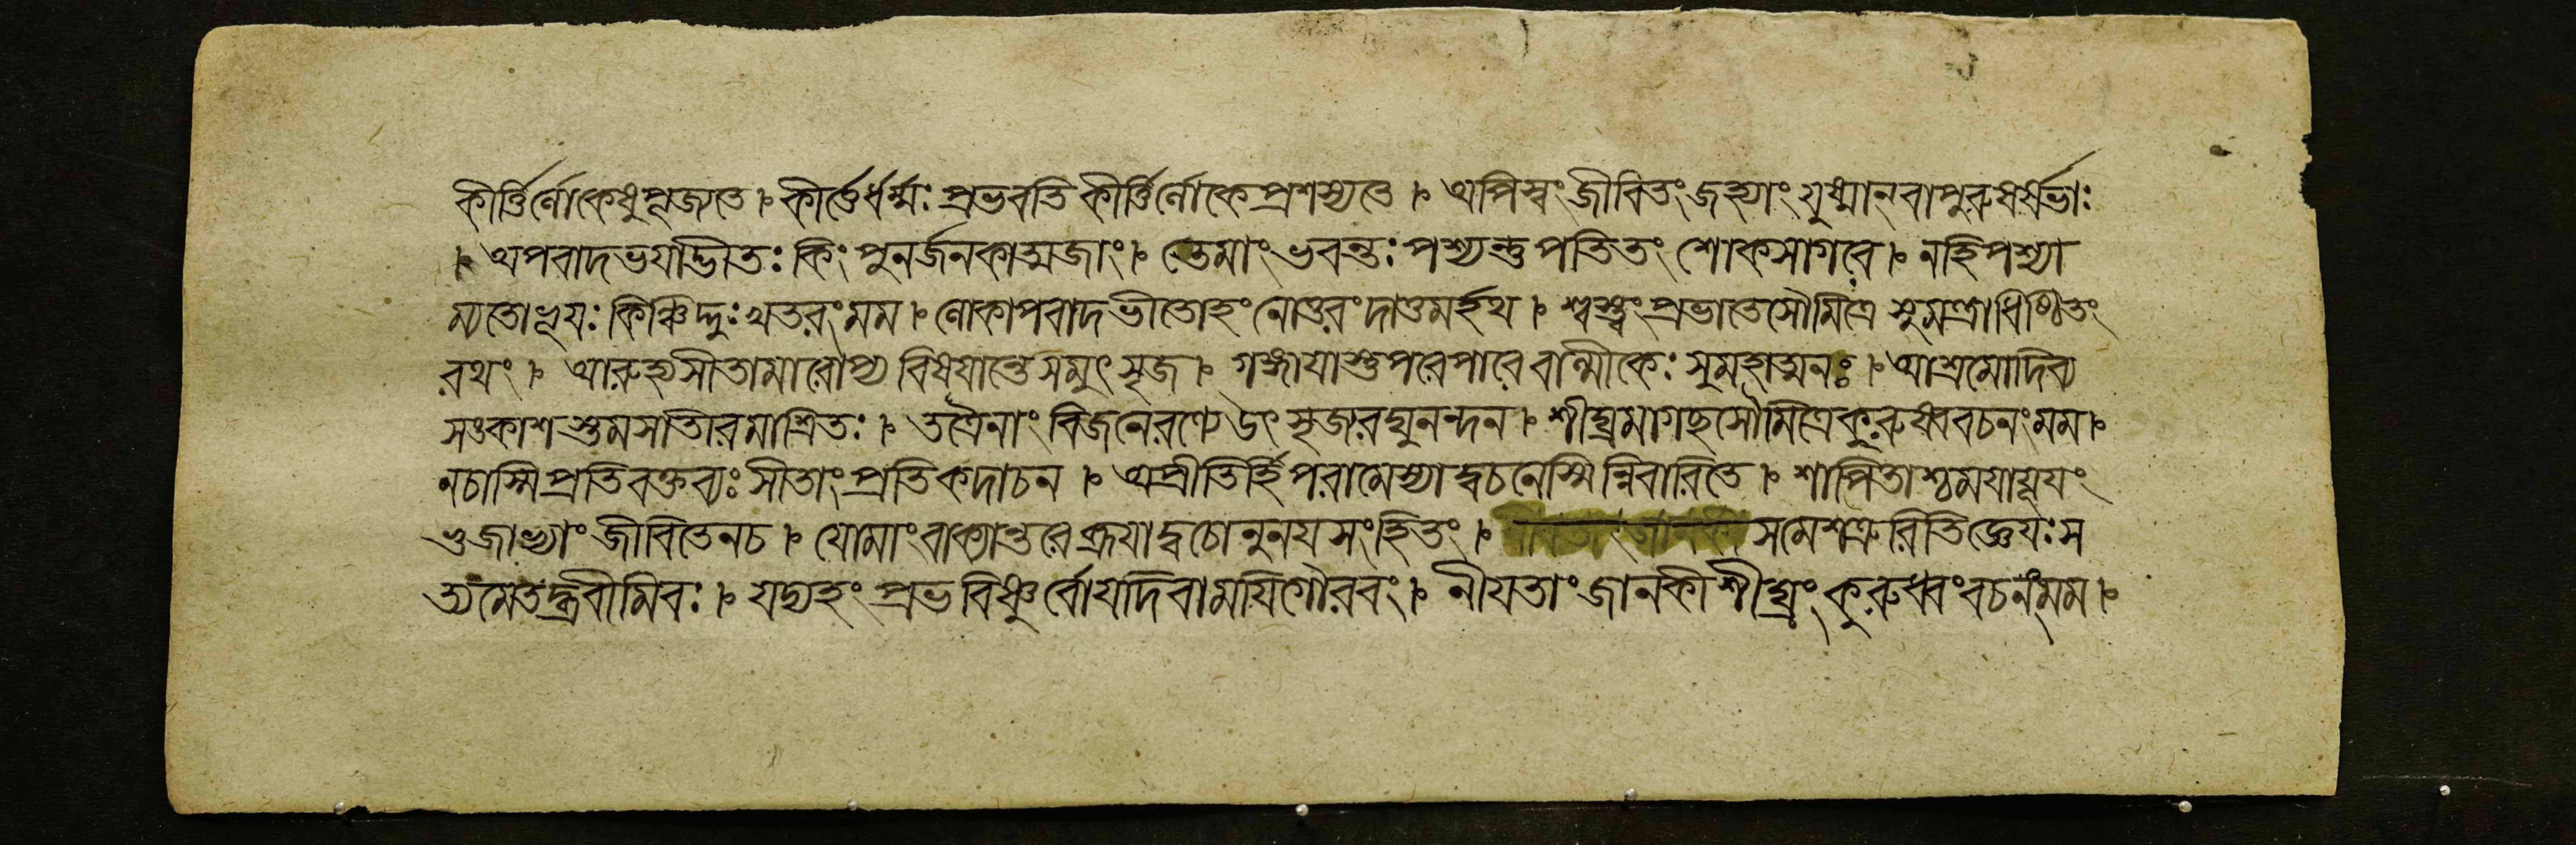 কীর্ত্তির্লোকেষুপূজ্যতে। কীর্ত্তের্ধর্ম্মঃ প্রভবতি কীর্ত্তির্লোকে প্রশস্যতে। অপিস্বং জীবিতং জহ্যাং যুষ্মান্ বা পুরুষর্ষভাঃ
। অপবাদভয়াদ্ভীতঃ কিং পুনর্জনকাত্মজাং। তেমাং ভবন্তঃ পশ্যন্তু পতিতং শোকসাগরে। নহি পশ্যা
ম্যতোভূয়ঃ কিঞ্চিদ্দুঃখতরং মম। লোকাপবাদভীতোহং নোত্তরং দাতুমর্হথ। শ্বস্ত্বং প্রভাতে সৌমিত্রে সুমন্ত্রাধিষ্ঠিতং
রথং। আরুহ্য সীতামারোপ্য বিষয়ান্তে সমুৎসৃজ। গঙ্গায়াস্তু পরেপারে বাল্মীকেঃ সুমহাত্মনঃ। আশ্রমোদিব্য
সঙ্কাশস্তমসাতীরমাশ্রিতঃ। তত্রৈনাং বিজনেরণ্যে উৎসৃজ রঘুনন্দন। শীঘ্রমাগচ্ছ সৌমিত্রে কুরুষ্ব বচনং মম।
নচাস্মি প্রতিবক্তব্যঃ সীতাং প্রতি কদাচন। অপ্রীতির্হি পরামেস্যাদ্বচনেস্মিন্নিবারিতে। শাপিতাশ্চময়াযূয়ং
ভুজাভ্যাং জীবিতেনচ। যোমাং বাক্যান্তরে ব্রূয়াদ্বচোনুনয়সংহিতং। সমেশত্রুরিতিজ্ঞেয়ঃ স
ত্যমেতদ্ব্রবীমিবঃ। যদ্যহং প্রভবিষ্ণুর্বোযদিবাময়িগৌরবং। নীয়তাং জানকী শীঘ্রং কুরুধ্বং বচনং মম।